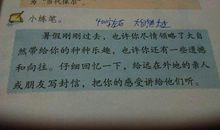 为"当代保尔"。
小练笔。 400字左右
暑假刚刚过去，也许你尽情领略了大自
然带给你的种种乐趣，也许你还有一些遗憾
和向往。仔细回忆一下，给远在外地的亲人
或朋友写封信，把你的感受讲给他们听。